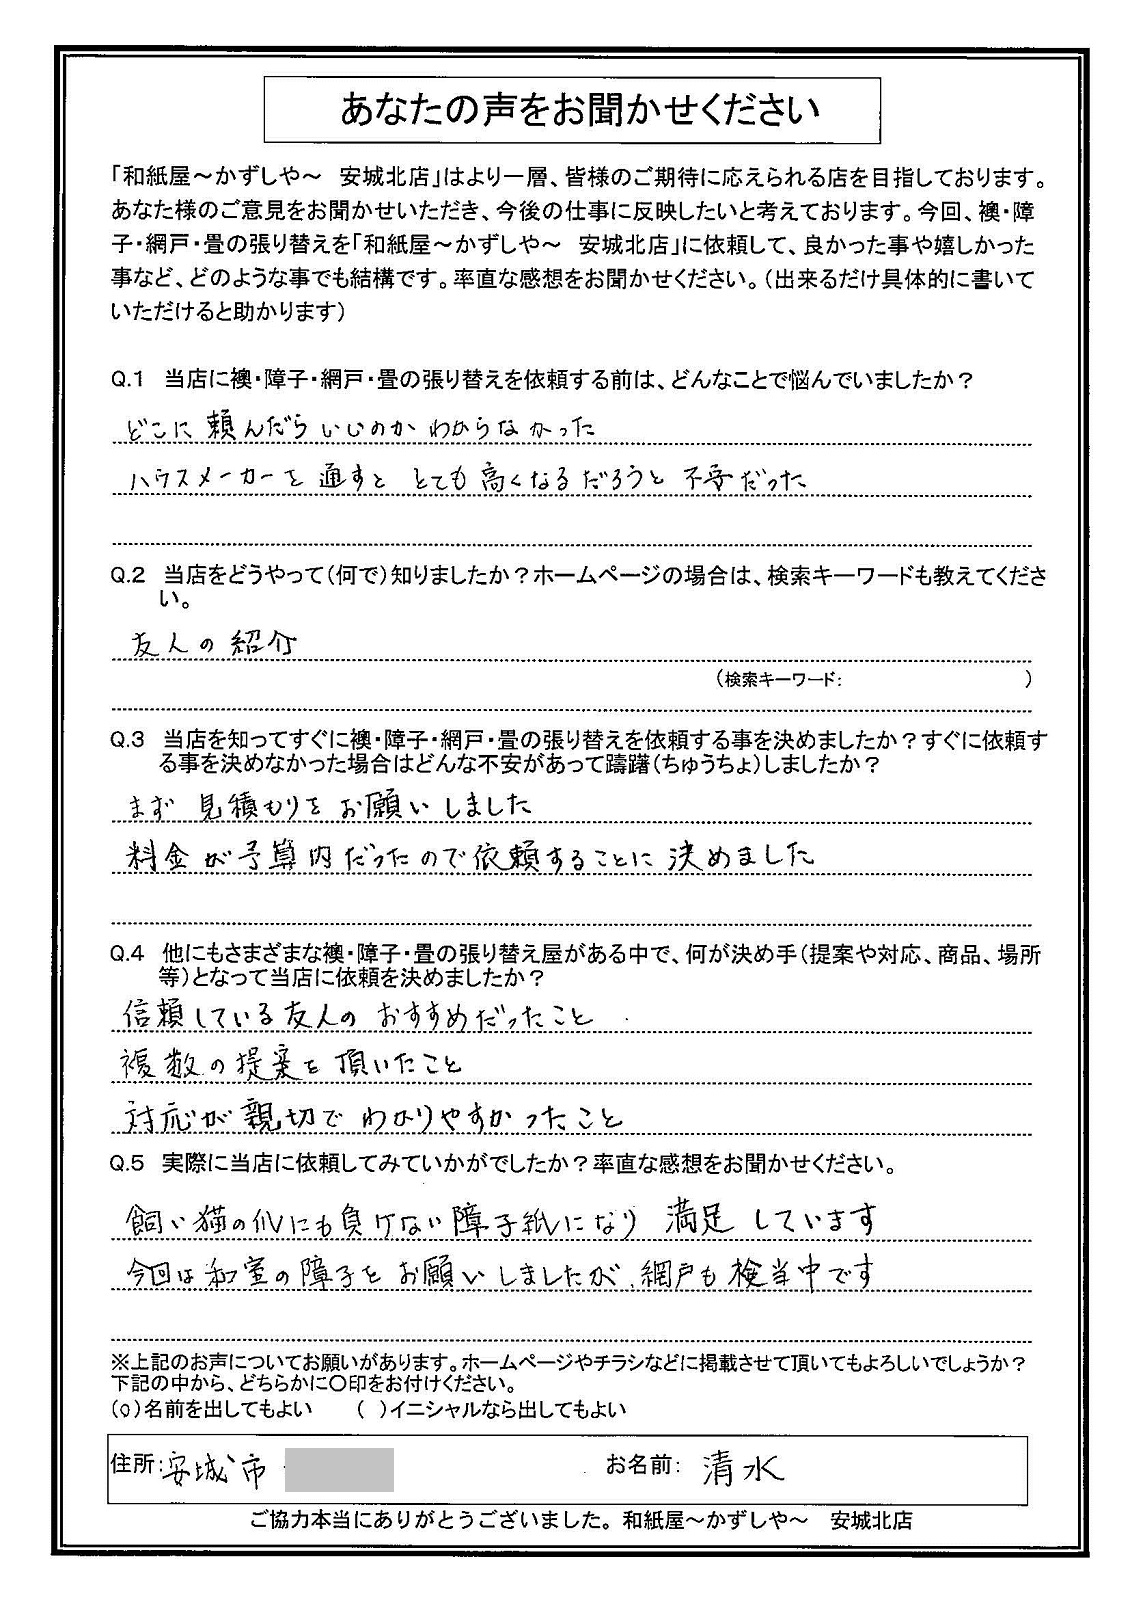 あなたの声をお聞かせください
「和紙屋～かずしや～　安城北店」はより一層、皆様のご期待に応えられる店を目指しております。
あなた様のご意見をお聞かせいただき、今後の仕事に反映したいと考えております。今回、襖・障
子・網戸・畳の張り替えを「和紙屋～かずしや～　安城北店」に依頼して、良かった事や嬉しかった
事など、どのような事でも結構です。率直な感想をお聞かせください。（出来るだけ具体的に書いて
いただけると助かります）
Q.1　当店に襖・障子・網戸・畳の張り替えを依頼する前は、どんなことで悩んでいましたか？
どこに頼んだらいいのかわからなかった
ハウスメーカーを通すと とても高くなるだろうと 不安だった
Q.2　当店をどうやって（何で）知りましたか？ホームページの場合は、検索キーワードも教えてくださ
い。
友人の紹介
（検索キーワード：　　　　　　　　　　）
Q.3　当店を知ってすぐに襖・障子・網戸・畳の張り替えを依頼する事を決めましたか？すぐに依頼す
る事を決めなかった場合はどんな不安があって躊躇（ちゅうちょ）しましたか？
まず 見積もりを お願いしました
料金が予算内だったので依頼することに決めました
Q.4　他にもさまざまな襖・障子・畳の張り替え屋がある中で、何が決め手（提案や対応、商品、場所
等）となって当店に依頼を決めましたか？
信頼している友人の おすすめだったこと
複数の提案を頂いたこと
対応が親切で わかりやすかったこと
Q.5　実際に当店に依頼してみていかがでしたか？率直な感想をお聞かせください。
飼い猫の爪にも負けない障子紙になり 満足しています
今回は和室の障子をお願いしましたが、網戸も検討中です
※上記のお声についてお願いがあります。ホームページやチラシなどに掲載させて頂いてもよろしいでしょうか？
下記の中から、どちらかに〇印をお付けください。
（○）名前を出してもよい　　（ ）イニシャルなら出してもよい
住所：安城市　お名前：清水
ご協力本当にありがとうございました。和紙屋～かずしや～　安城北店